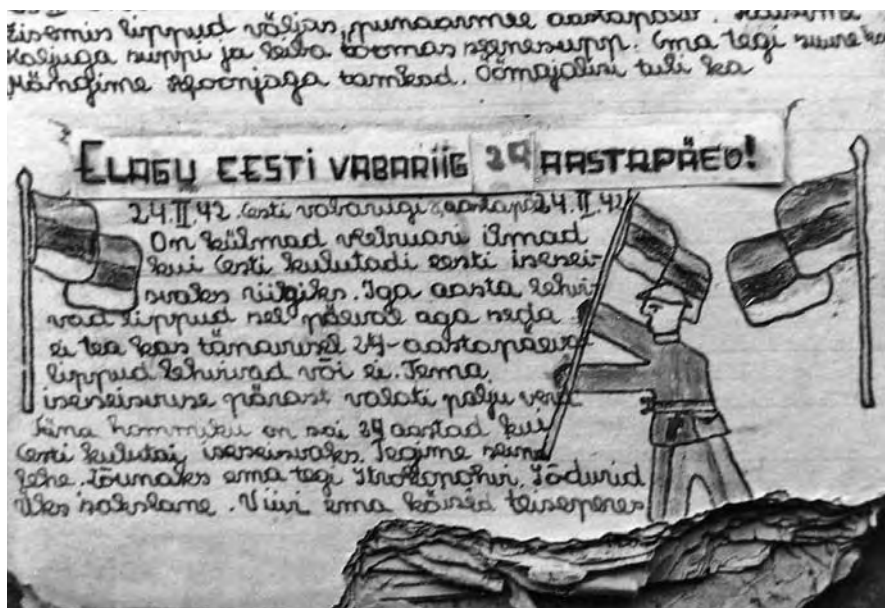 lippud väljas, punaarmee aastapäev.
Kaljuga suppi ja leiba toomas seenesupp. Ema tegi suure
Mängime sepoonjaga tamkad. Öömajalisi tuli ka
ELAGU EESTI VABARIIG 24 AASTAPÄEV!
24.II.42. Eesti vabariigi aastapä 24.II.42
On külmad veebruari ilmad
kui Eesti kulutadi eesti isesei-
svaks riilgiks. Iga aasta lehvi-
vad lippud sel päeval aga seda
ei tea kas tänavusel 24-aastapäeval
lippud lehvivad või ei. Tema
iseseisvuse pärast valati palju verd
Täna hommiku on sai 24 aastad kui
Eesti kulutaj iseseisvaks. Tegime seina
lehe. Lõunaks ema tegi Sõdurid
Üks sakslane. Viivi ema käised teiseperes